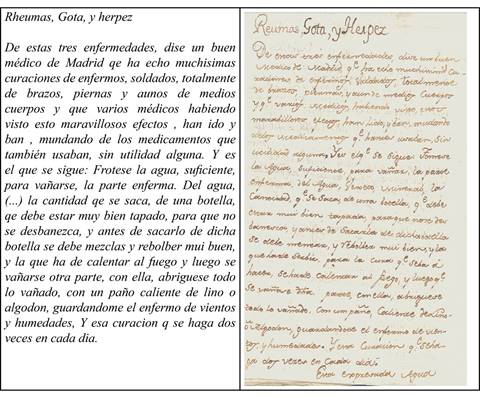 Rheumas, Gota, y herpez
De estas tres enfermedades, dise un buen
médico de Madrid qe ha echo muchisimas
curaciones de enfermos, soldados, totalmente
de brazos, piernas y aunos de medios
cuerpos y que varios médicos habiendo
visto esto maravillosos efectos , han ido y
ban , mundando de los medicamentos que
también usaban, sin utilidad alguna. Y es
el que se sigue: Frotese la agua, suficiente,
para vañarse, la parte enferma. Del agua,
(...) la cantidad qe se saca, de una botella,
qe debe estar muy bien tapado, para que no
se desbanezca, y antes de sacarlo de dicha
botella se debe mezclas y rebolber mui buen,
y la que ha de calentar al fuego y luego se
vañarse otra parte, con ella, abriguese todo
lo vañado, con un paño caliente de lino o
algodon, guardandome el enfermo de vientos
y humedades, Y esa curacion q se haga dos
veces en cada dia.
Reumas, Gota, y Herpez
De estas tres enfermedades, dise un buen
Medico de Madrid, qe ha echo muchisimas Cu-
raciones de enfermos, valdados, totalmente
de brazos, piernas, y aun de medios Cuerpos
y qe varios Medicos habiendo visto estos
maravillosos efectos, han ido, y ban, mudando
utilidad alguna. Y es el qe se sigue. Tomese
la Agua, suficiente, para vañar, la parte
enferma. Del Agua,
Cantidad, qe se Saca, de una botella, qe debe
estar muy bien tapada, para que no se des-
banezca, y antes de Sacarla de dicha botella
se debe menear, y rebolber mui bien, y la
que
se vañará dha parte, con ella, abriguese
todo lo vañado, Con un paño, Caliente de Lino
o Algodon, guardandose el enfermo de vien-
tos, y humedades. Y esta Curacion qe se ha-
ga dos veces en Cada dia.
Esta expresada Agua